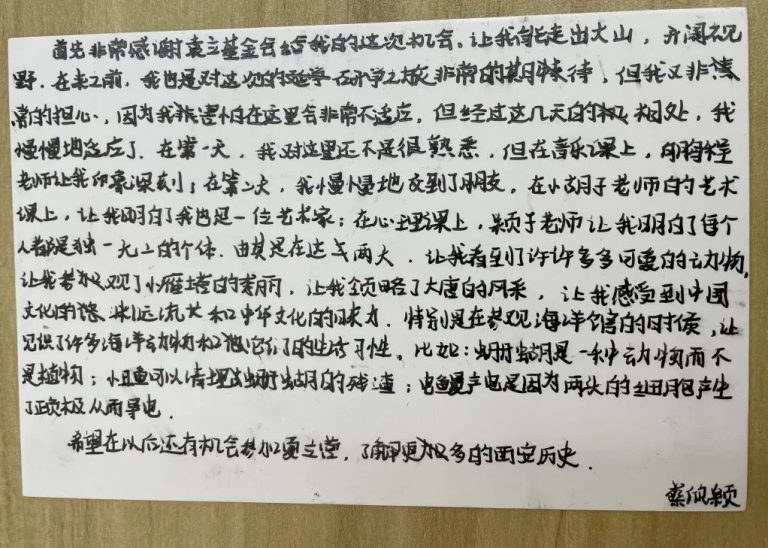 首先非常感谢袁立基金会给我的这次机会。让我能走出大山,开阔视
野。在来之前,我也是对这次的延学研学之旅非常的期待,但我又非
常的担心,因为我非常害怕在这里会非常不适应。但经过这几天的相处,我
慢慢地适应了。在第一天,我对这里还不是很熟悉,但在音乐课上,
老师让我印象深刻;在第二天,我慢慢地交到了朋友。在小胡子老师的艺术
课上,让我明白了我也是一位艺术家;在心理课上,颖子老师让我明白了每个
人都是独一无二的个体。由其是在这两天,让我看到了许许多多可爱的动物,
让我参观了小雁塔的美丽,让我领略了大唐的风采,让我感受到中国
文化的源远流长和中华文化的魅力。特别是在参观海洋馆的时侯,让
见识了许多海洋动物和它们的生活习性。比如:珊瑚是一种动物而不
是植物;可以清理珊瑚的残渣;电鳗声电是因为两头的细胞产生
了正负极从而导电。
希望在以后还有机会参加夏立营,了解更多的西安历史。
蔡佩颖